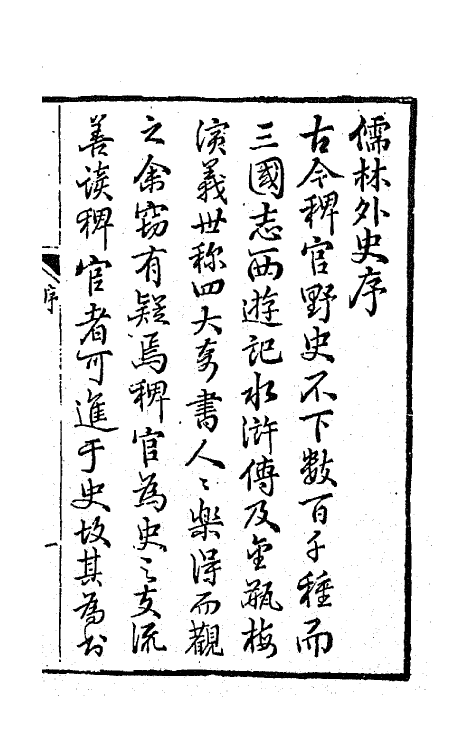 儒林外史序
古今稗官野史不下數百千種而
三國志西遊記水滸傳及金瓶梅
演義世称四大奇書人〻樂得而觀
之余窃有疑焉稗官為史之支流
善读稗官者可進于史故其為书
序
一